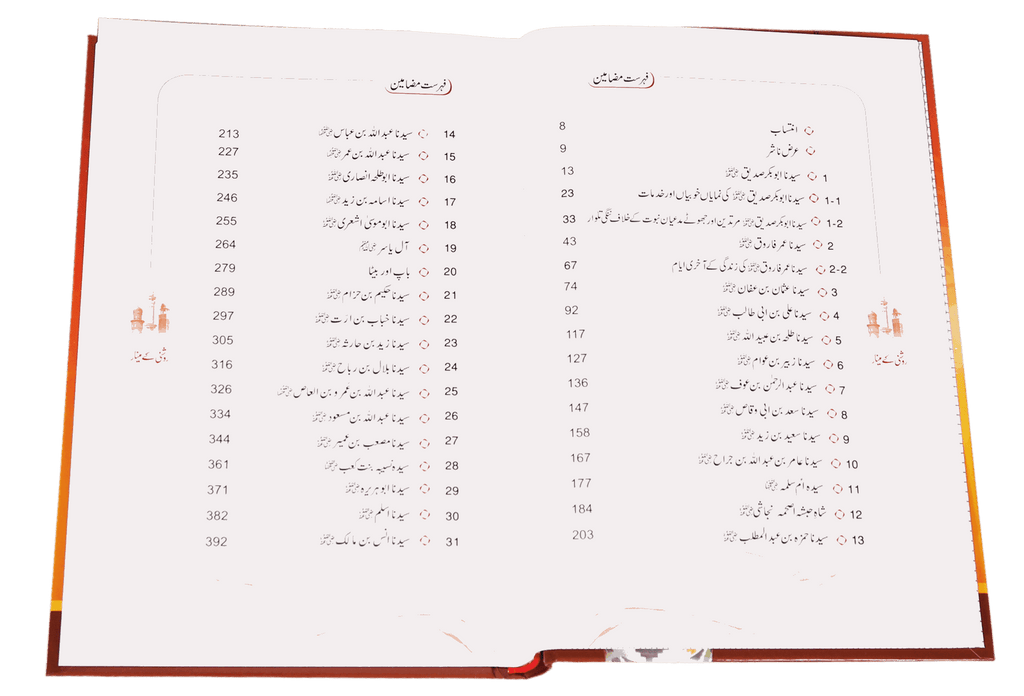 فہرست مضامین
انتساب 8
عرض ناشر 9
1 سیدنا ابوبکر صدیق رضی اللہ عنہ 13
1-1 سیدنا ابوبکر صدیق رضی اللہ عنہ کی نمایاں خوبیاں اور خدمات 23
1-2 سیدنا ابوبکر صدیق رضی اللہ عنہ مرتدین اور جھوٹے مدعیان نبوت کے خلاف ننگی تلوار 33
2 سیدنا عمر فاروق رضی اللہ عنہ 43
2-2 سیدنا عمر فاروق رضی اللہ عنہ کی زندگی کے آخری ایام 67
3 سیدنا عثمان بن عفان رضی اللہ عنہ 74
4 سیدنا علی بن ابی طالب رضی اللہ عنہ 92
5 سیدنا طلحہ بن عبید اللہ رضی اللہ عنہ 117
6 سیدنا زبیر بن عوام رضی اللہ عنہ 127
7 سیدنا عبدالرحمٰن بن عوف رضی اللہ عنہ 136
8 سیدنا سعد بن ابی وقاص رضی اللہ عنہ 147
9 سیدنا سعید بن زید رضی اللہ عنہ 158
10 سیدنا عامر بن عبداللہ بن جراح رضی اللہ عنہ 167
11 سیدہ ام سلمہ رضی اللہ عنہا 177
12 شاہ حبشہ اصحمہ نجاشی رضی اللہ عنہ 184
13 سیدنا حمزہ بن عبدالمطلب رضی اللہ عنہ 203
روشنی کے مینار
فہرست مضامین
14 سیدنا عبداللہ بن عباس رضی اللہ عنہ 213
15 سیدنا عبداللہ بن عمر رضی اللہ عنہ 227
16 سیدنا ابوطلحہ انصاری رضی اللہ عنہ 235
17 سیدنا اسامہ بن زید رضی اللہ عنہ 246
18 سیدنا ابوموسیٰ اشعری رضی اللہ عنہ 255
19 آل یاسر رضی اللہ عنہم 264
20 باپ اور بیٹا 279
21 سیدنا حکیم بن حزام رضی اللہ عنہ 289
22 سیدنا خباب بن ارت رضی اللہ عنہ 297
23 سیدنا زید بن حارثہ رضی اللہ عنہ 305
24 سیدنا بلال بن رباح رضی اللہ عنہ 316
25 سیدنا عبداللہ بن عمرو بن العاص رضی اللہ عنہ 326
26 سیدنا عبداللہ بن مسعود رضی اللہ عنہ 334
27 سیدنا مصعب بن عمیر رضی اللہ عنہ 344
28 سیدہ نسیبہ بنت کعب رضی اللہ عنہا 361
29 سیدنا ابوہریرہ رضی اللہ عنہ 371
30 سیدنا اسلم رضی اللہ عنہ 382
31 سیدنا انس بن مالک رضی اللہ عنہ 392
روشنی کے مینار